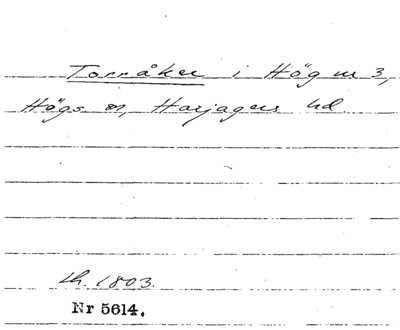 Tornåker i Hög nr 3,
Högs sn, Harjagers hd.
Lh. 1803.
Nr 5614.